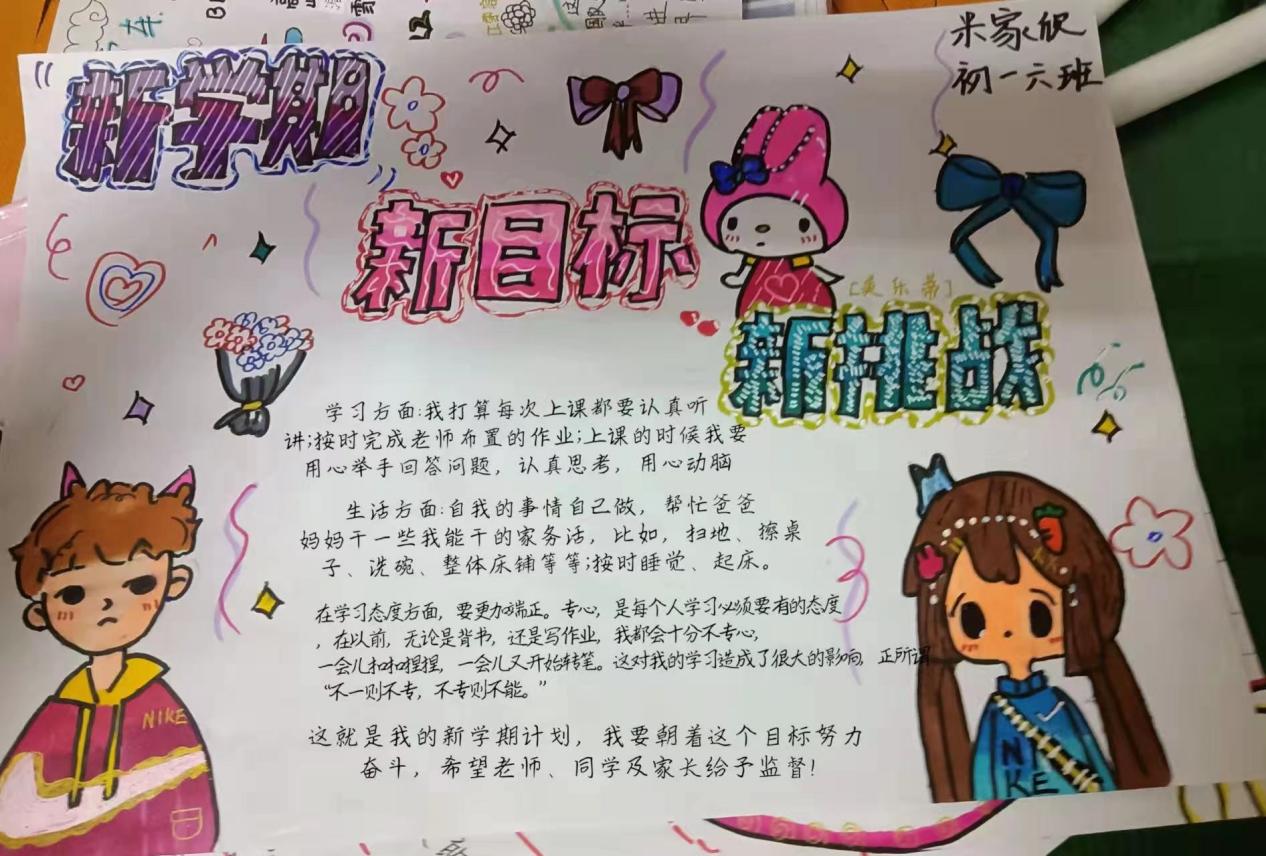 米家欣
初一六班
新学期
新目标
[美乐蒂]
新挑战
学习方面:我打算每次上课都要认真听
讲;按时完成老师布置的作业;上课的时候我要
用心举手回答问题，认真思考，用心动脑
生活方面:自我的事情自己做，帮忙爸爸
妈妈干一些我能干的家务活，比如，扫地、擦桌
子、洗碗、整体床铺等等;按时睡觉、起床。
在学习态度方面，要更加端正。专心，是每个人学习必须要有的态度
，在以前，无论是背书，还是写作业，我都会十分不专心，
一会儿扣扣捏捏，一会儿又开始转笔。这对我的学习造成了很大的影响，正所谓
“不一则不专，不专则不能。”
这就是我的新学期计划，我要朝着这个目标努力
奋斗，希望老师、同学及家长给予监督!
NIKE
NI
KE